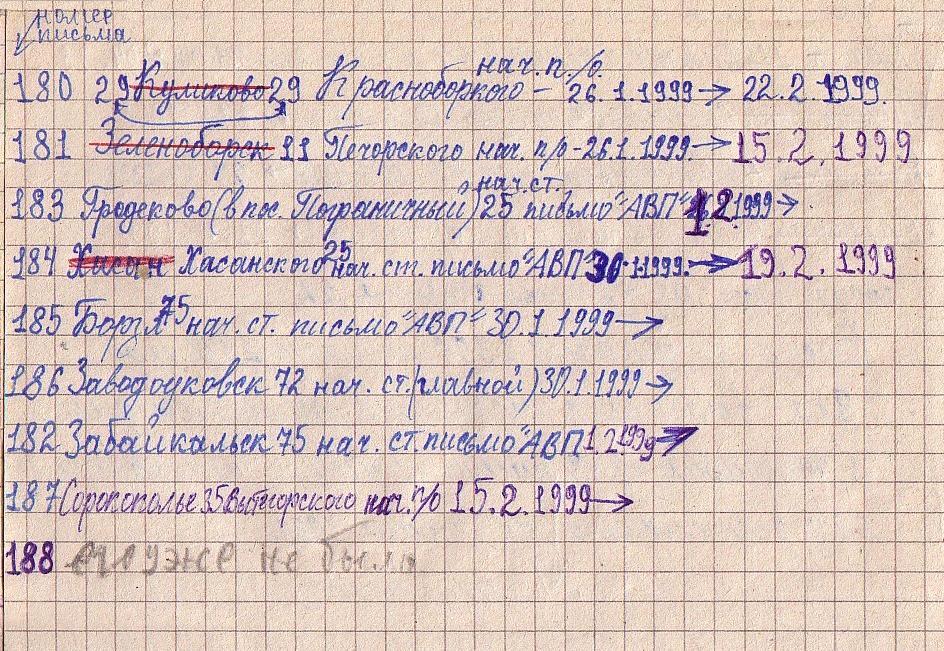 номер
письма
нач. п/о.
180 29 Куликово 29 Красноборкого - 26.1.1999 → 22.2.1999.
181 Зеленоборск 11 Печорского нач. п/о - 26.1.1999. → 15.2.1999
нач. ст.
183 Гродеково (в пос. Пограничный) 25 письмо "АВП" 1.2.1999 →
184 Хасан Хасанского 25 нач. ст. письмо "АВП" 30.1.1999. → 19.2.1999
185 Борзя 75 нач. ст. письмо "АВП" 30.1.1999 →
186 Заводоуковск 72 нач. ст. (главной) 30.1.1999 →
182 Забайкальск 75 нач. ст. письмо "АВП 1.2.1999 →
187 Сорокополье 35 Вытегорского нач. п/о 15.2.1999 →
188 его уже не было